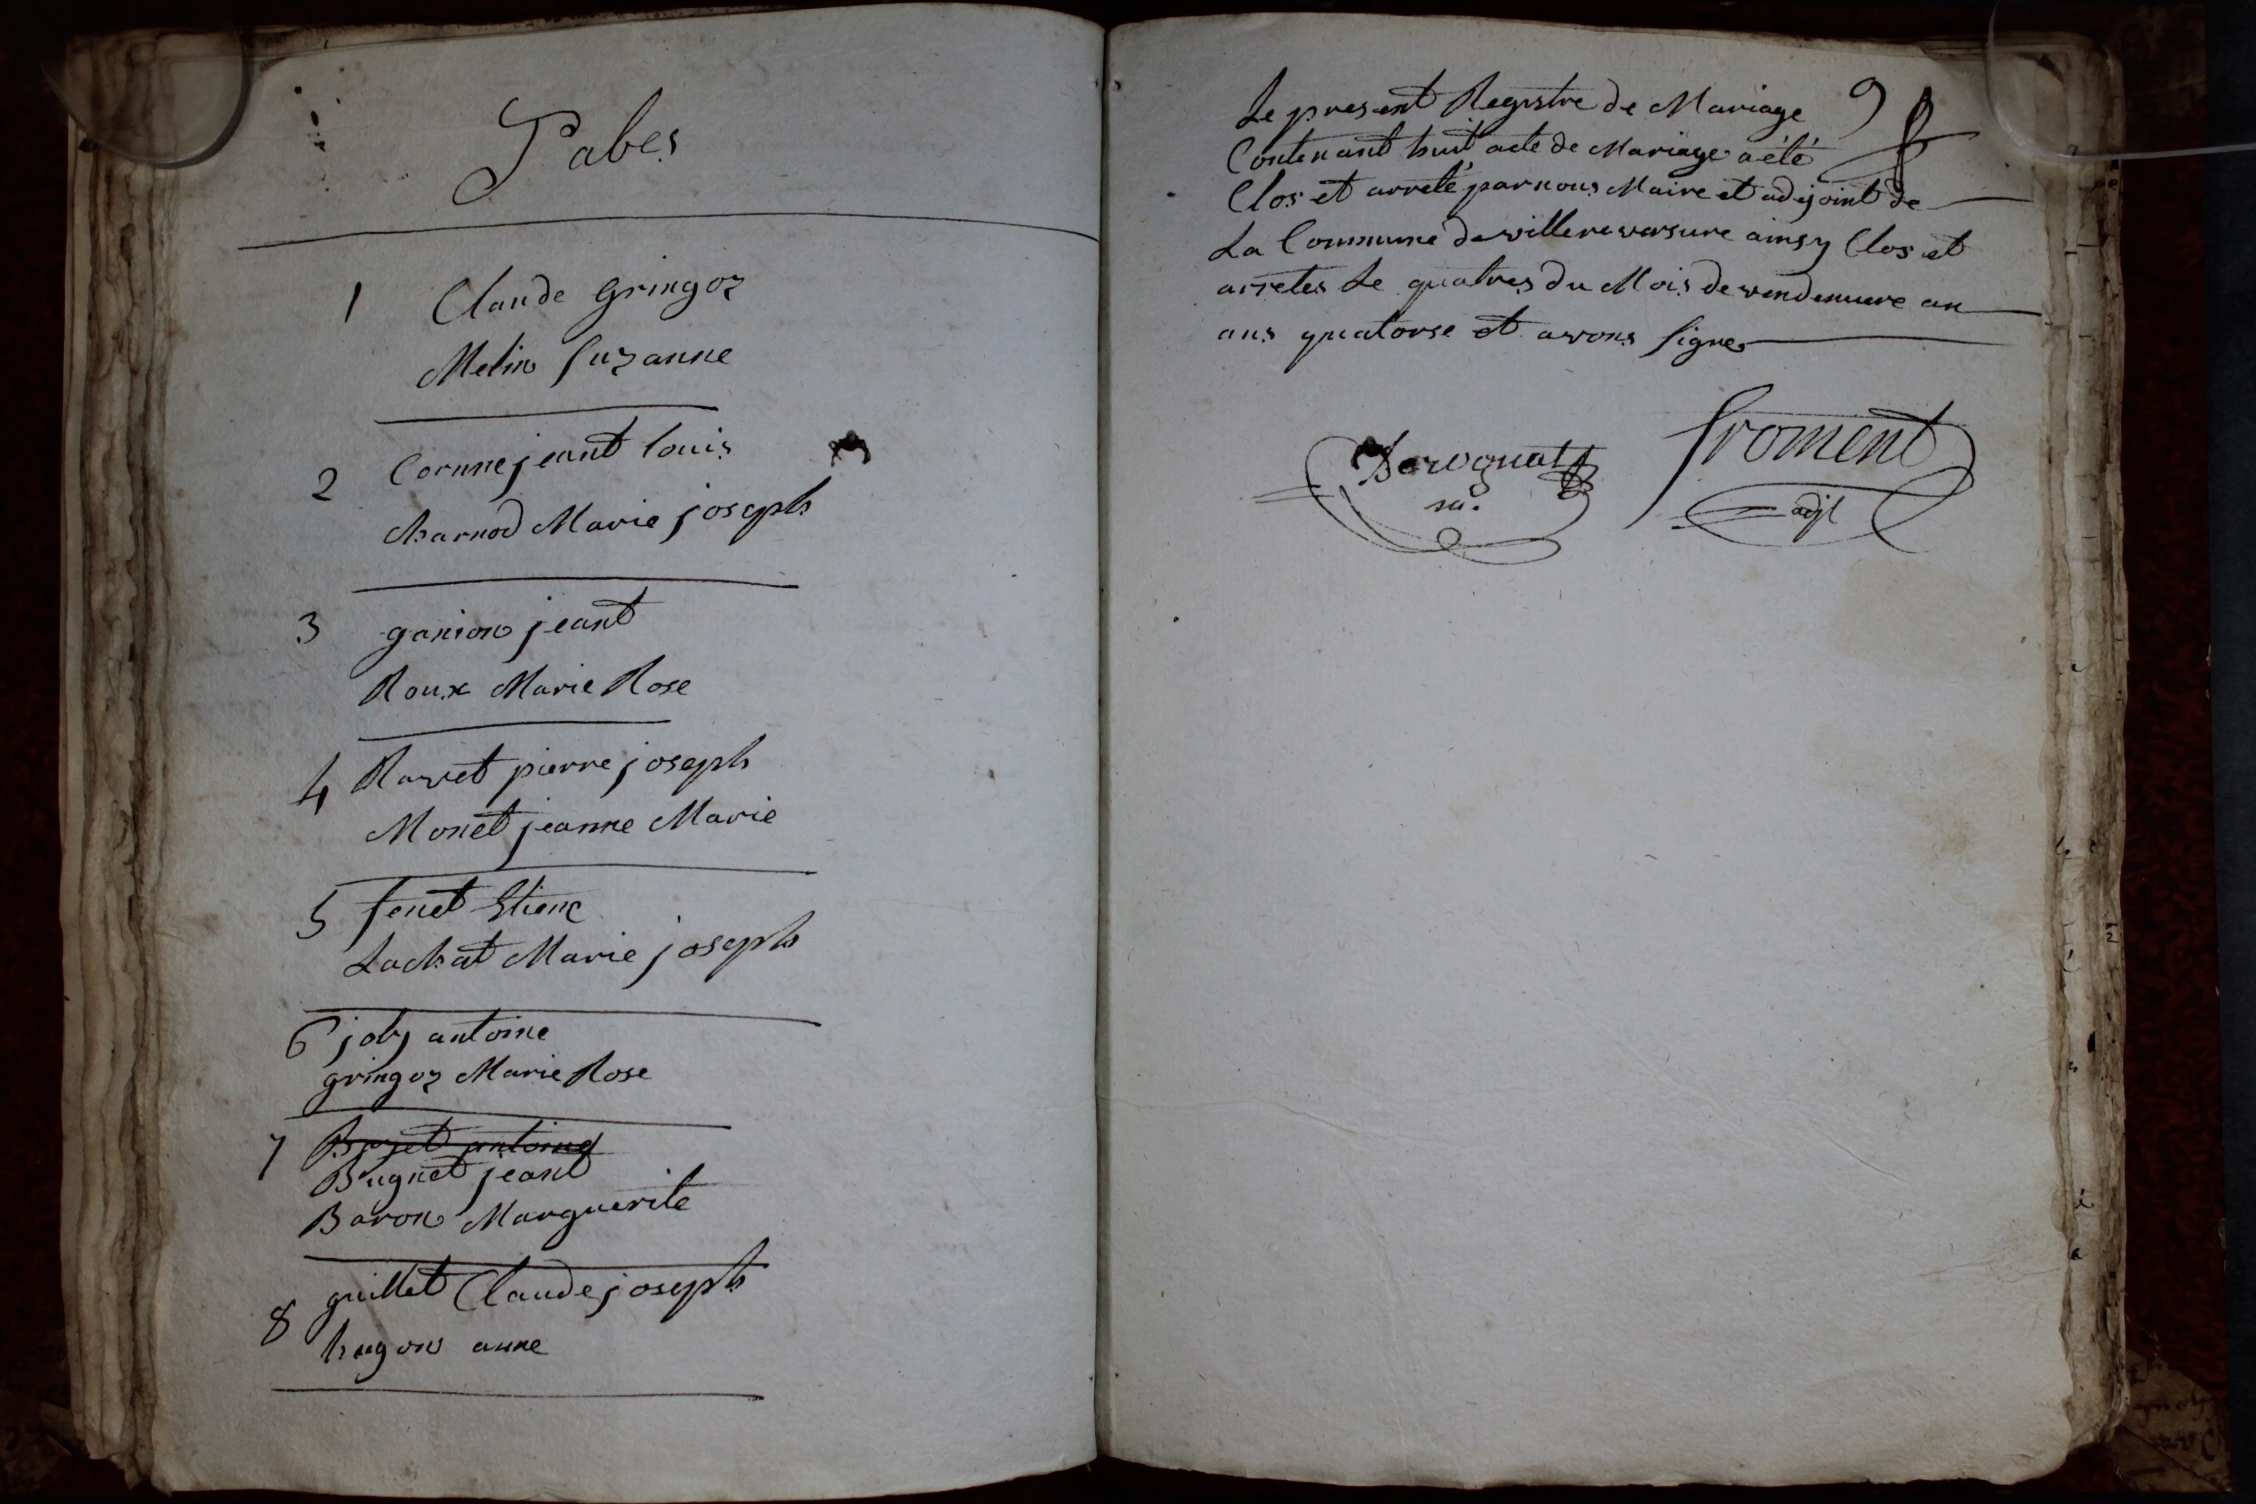 Tabes
1 Claude Gringoz
Melin Suzanne
2 Cornne jeant Louis
charnod Marie joseph
3 ganion jeant
Roux Marie Rose
4 Ravet pierre joseph
Monet jeanne Marie
5 fenet Etiene
Lachat Marie joseph
6 joly antoine
gringoz Marie Rose
7 antoine
Bugnet jeant
Baron Marguerite
8 guillet Claude joseph
hugon anne
9
Le present Registre de Mariage
Contenant huit acte de Mariage a été
Clos et arreté par nous Maire et adjoint de
La Commune de villereversure ainsy Clos et
arretes Le quatres du Mois de vendemiere an
ans quatorse et avons Signer
froment
adjt